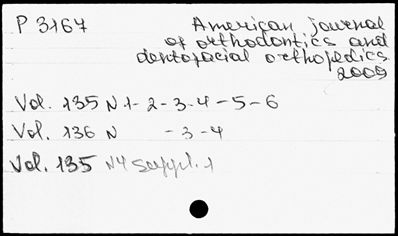 P 3167 American journal
of orthodontics and
dentofacial orthopedics
2009
Vol. 135 N 1-2-3-4-5-6
Vol. 136 N -3-4
Vol. 135 N4 Suppl. 1